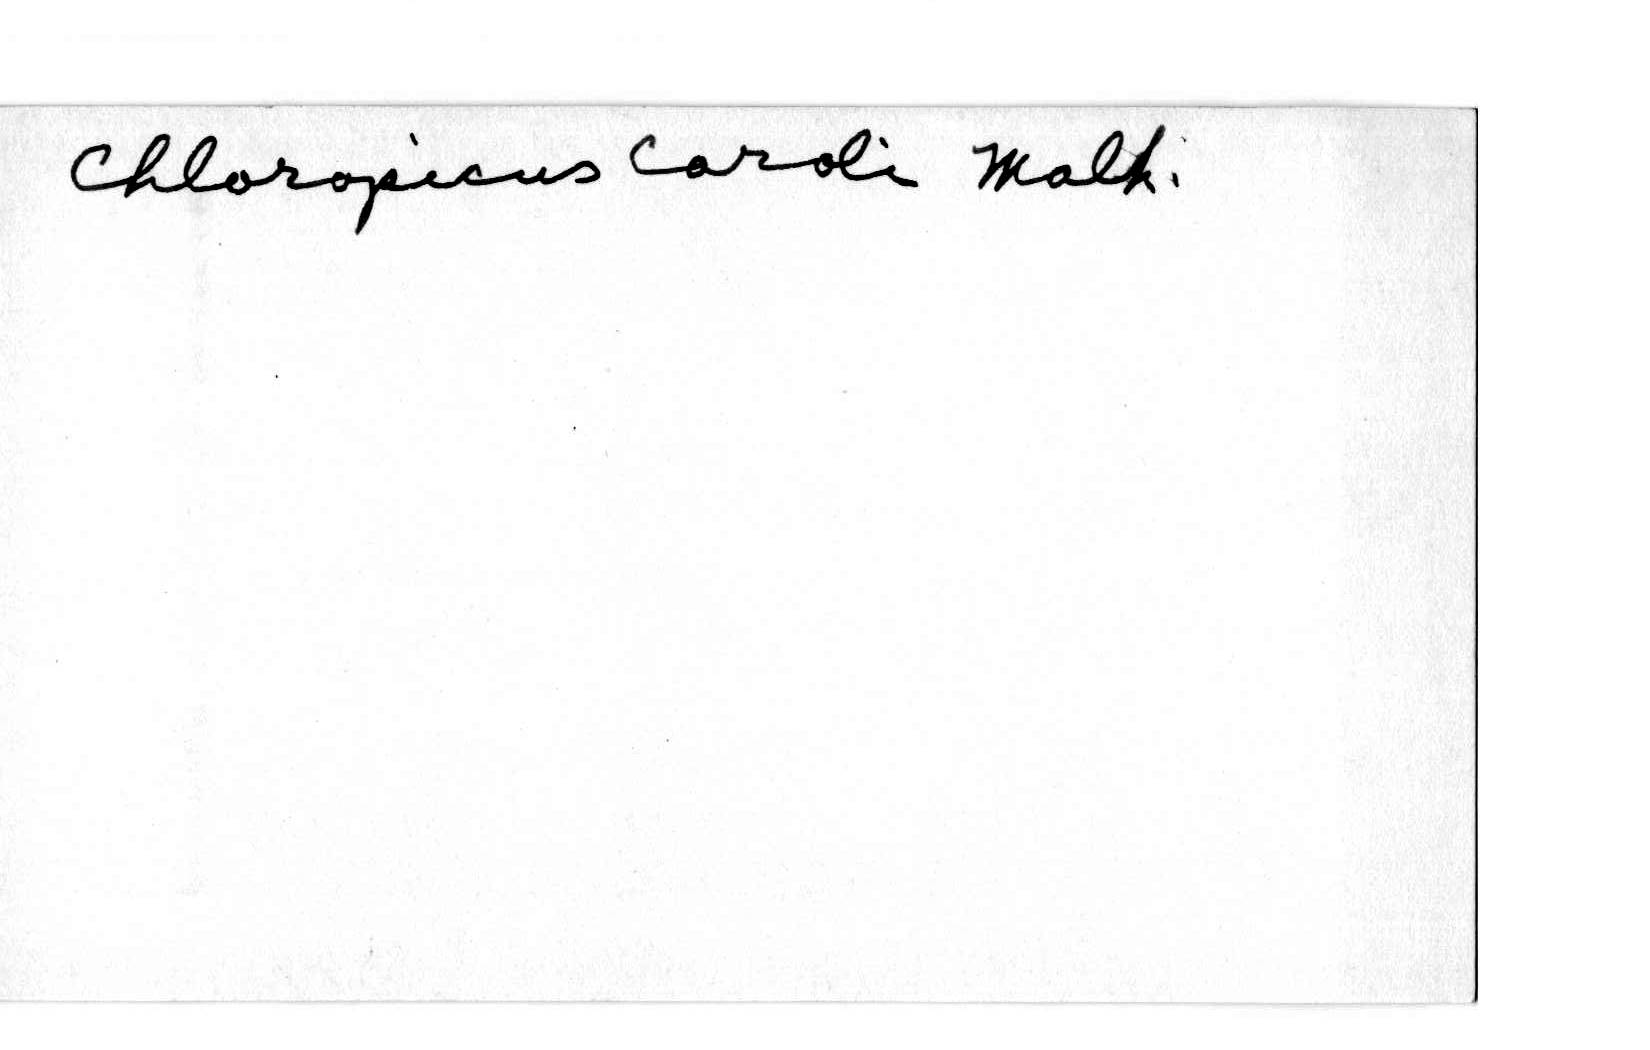 Chloropicus caroli Malh.